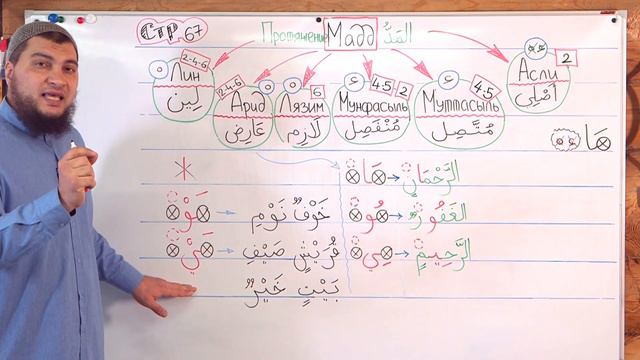 Стр 67 Протяжение Мадд اَلْمَدُّ
2-4-6 2-4-6 6 4-5 2 4-5 2
Лин Арид Лязим Мунфасыль Муттасыль Асли
لِين عَارِض لَازِم مُنْفَصِل مُتَّصِل أَصْلِي
مَا
مَا الرَّحْمَانِ
مَوْ خَوْفٌ نَوْمِ مُو الغَفُورُ
مَيْ قُرَيْشٍ صَيْفِ مِي الرَّحِيمِ
بَيْتٍ خَيْرٌ